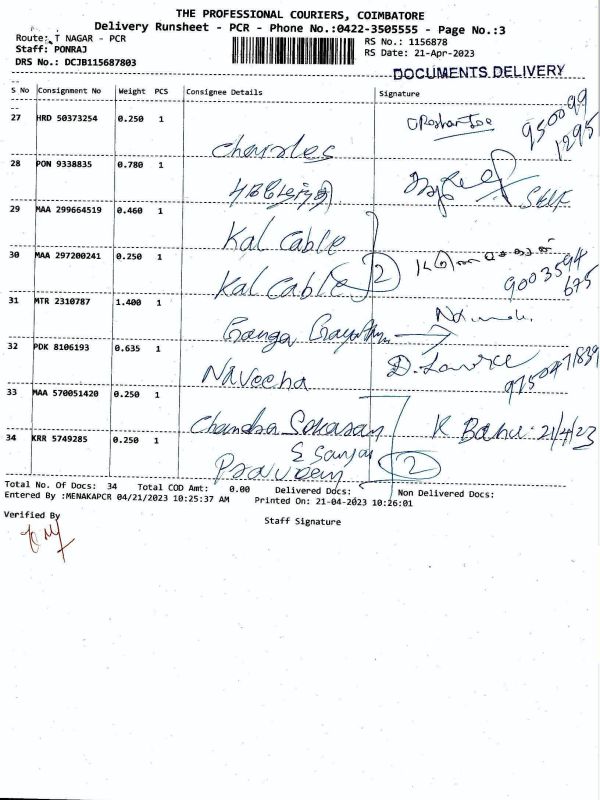 THE PROFESSIONAL COURIERS, COIMBATORE
Delivery Runsheet - PCR - Phone No.:0422-3505555 - Page No.:3
Route: T NAGAR - PCR
RS No.: 1156878
Staff: PONRAJ
RS Date: 21-Apr-2023
DRS No.: DCJB115687803
DOCUMENTS DELIVERY
S No Consignment No Weight PCS Consignee Details Signature
27 HRD 50373254 0.250 1
950099
1295
Charles
28 PON 9338835 0.780 1
SELF
29 MAA 299664519 0.460 1
Kal Cable
30 MAA 297200241 0.250 1
Kal Cable 2
9003594
675
31 MTR 2310787 1.400 1
Ganga
32 PDK 8106193 0.635 1
Naveena
D.
33 MAA 570051420 0.250 1
Chandra K Banu 21/4/23
34 KRR 5749285 0.250 1
E Sanjai
Praveen 2
Total No. Of Docs: 34 Total COD Amt: 0.00 Delivered Docs: Non Delivered Docs:
Entered By :MENAKAPCR 04/21/2023 10:25:37 AM Printed On: 21-04-2023 10:26:01
Verified By
Staff Signature